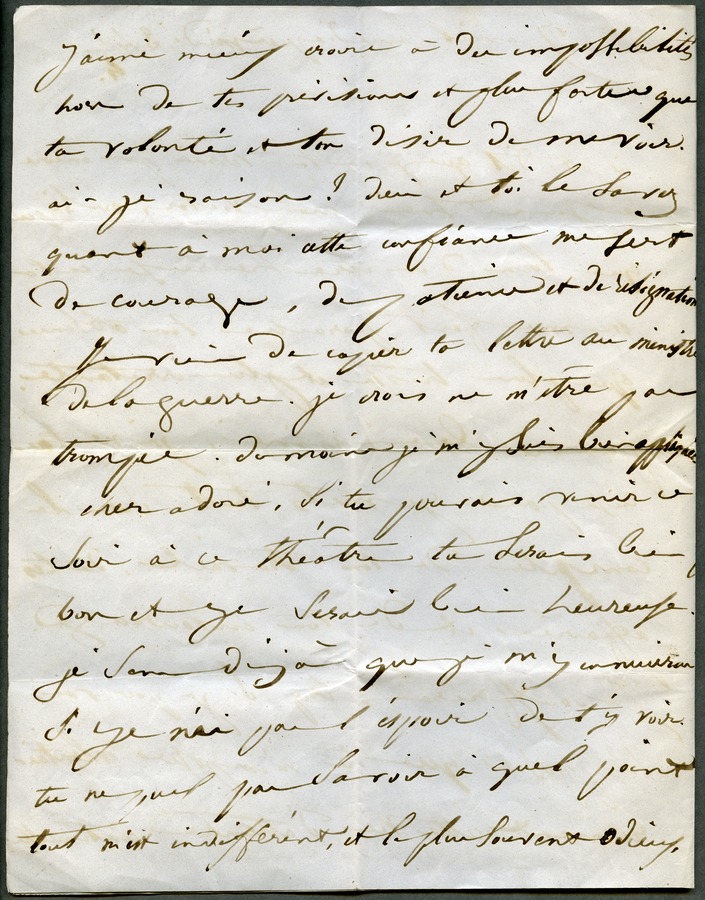 j'aime mieux croire à des impossibilités
hors de tes prévisions et plus fortes que
ta volonté et ton désir de me voir.
ai-je raison ? dieu et toi le savez
quant à moi cette confiance me sert
de courage, de patience et de résignation
Je viens de copier ta lettre au ministre
de la guerre. je crois ne m'être pas
trompée. du moins je m'y suis bien appliquée
cher adoré, Si tu pouvais venir ce
Soir à ce théâtre tu Serais bien
bon et je Serais bien heureuse.
je Sens déjà que je m'y ennuierai
Si je n'ai pas l'espoir de t'y voir.
tu ne peux pas Savoir à quel point
tout m'est indifférent, et le plus Souvent odieux,